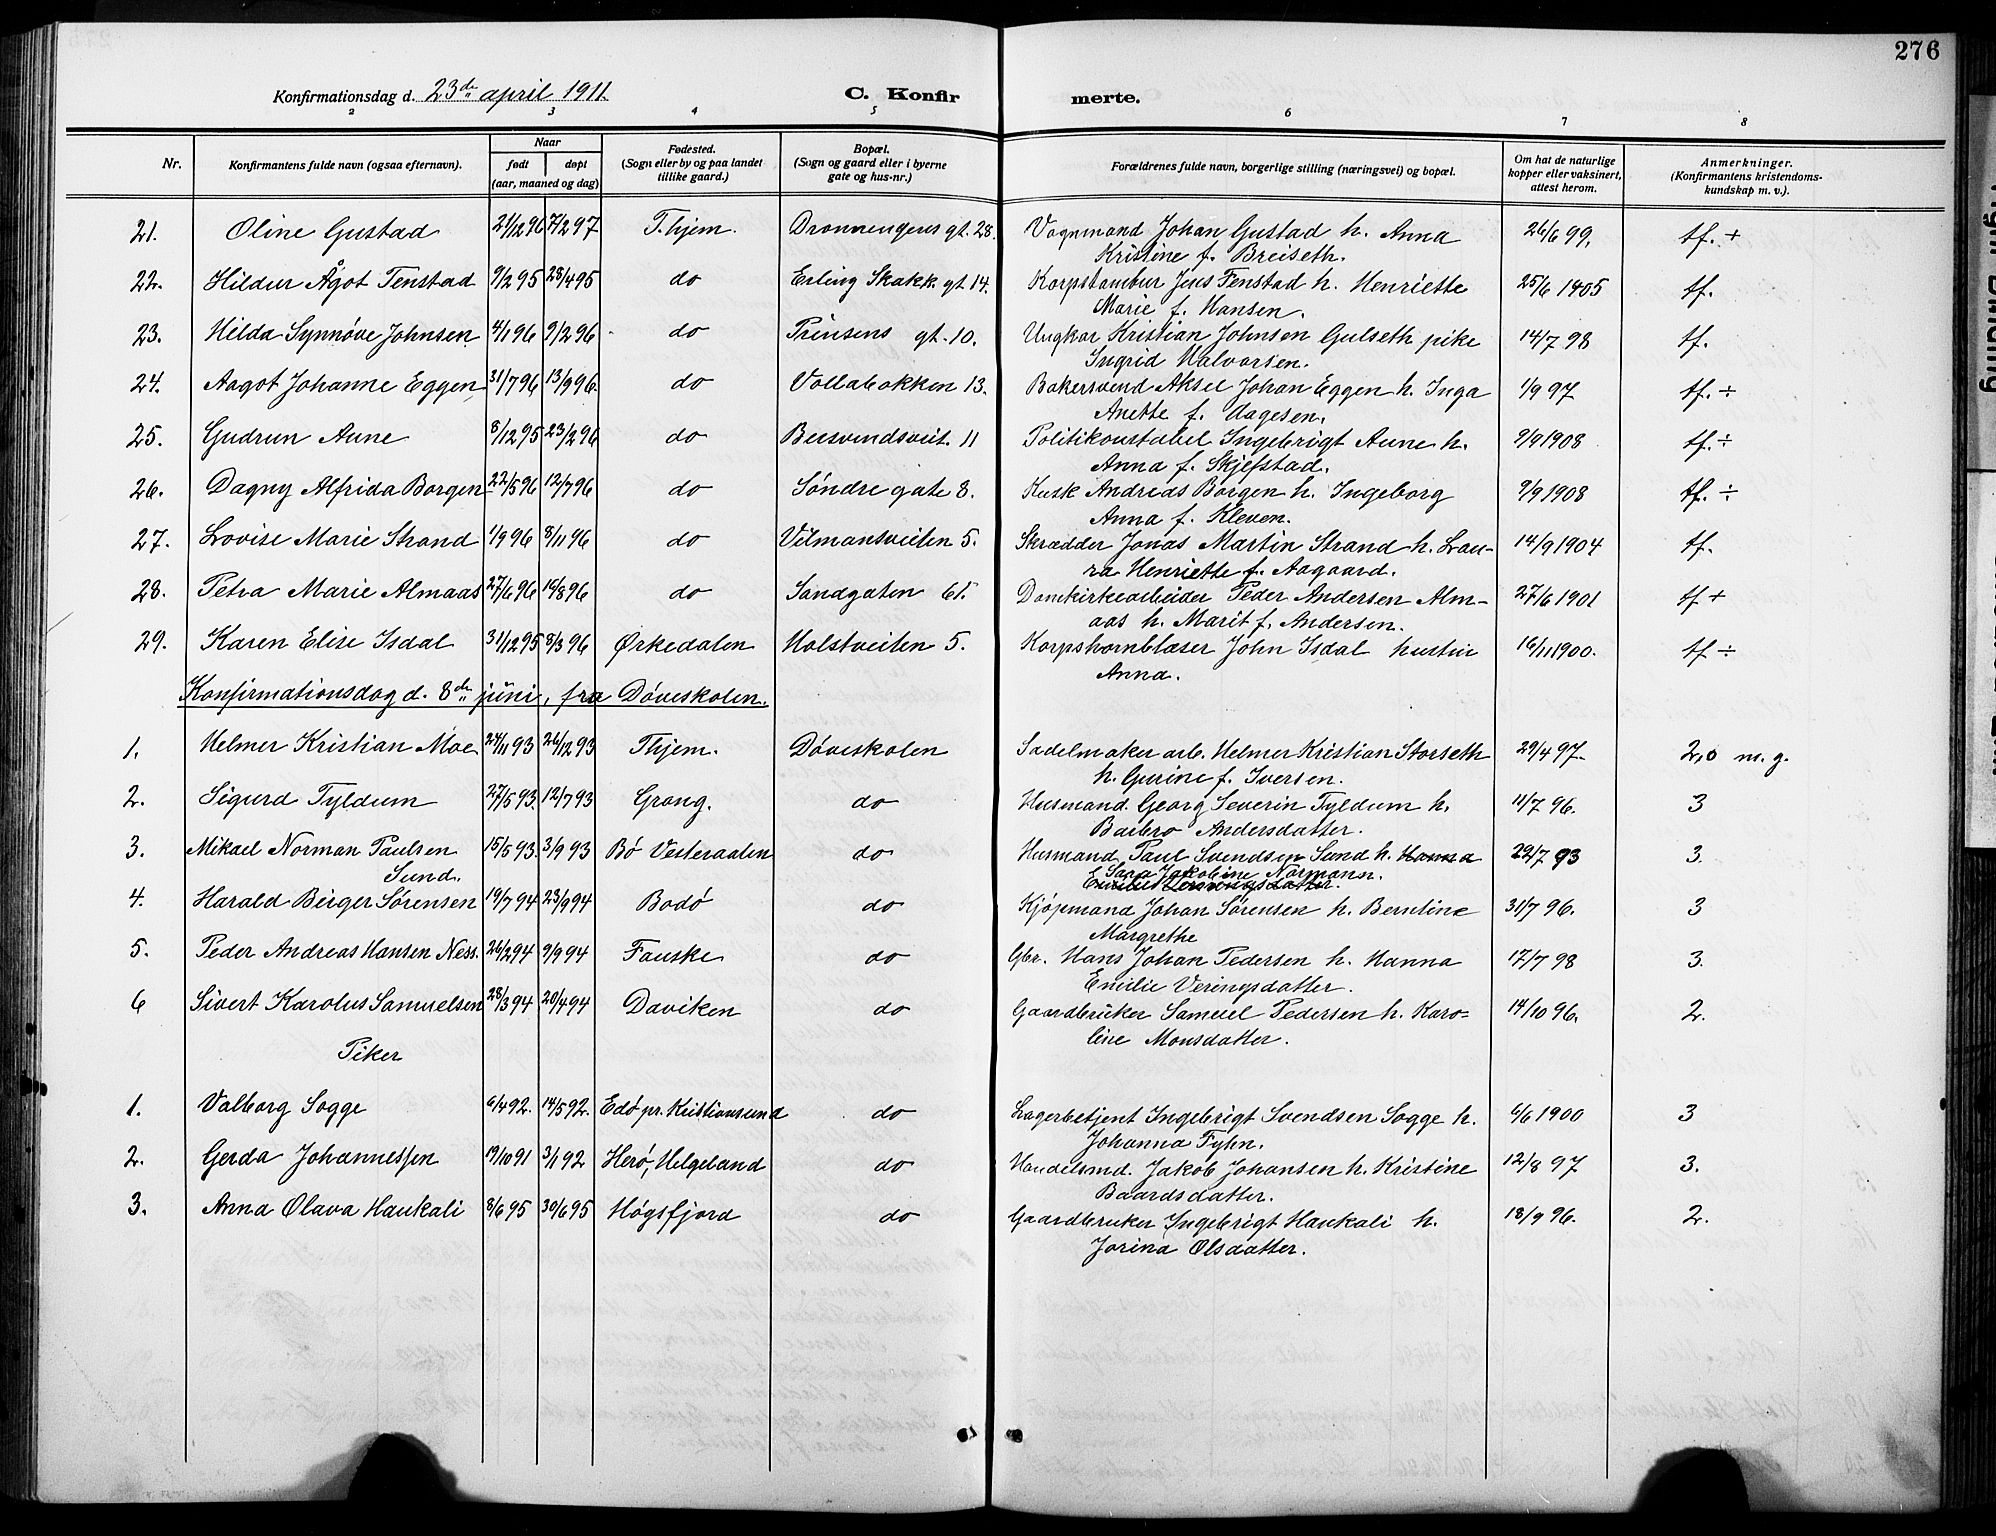 276
Konfirmationsdag d. 23de april 1911. C. Konfir merte.
2 3 4 5 6 7 8
Nr. Konfirmantens fulde navn (ogsaa efternavn). Naar født døpt (aar, maaned og dag) Fødested. (Sogn eller by og paa landet tillike gaard.) Bopæl. (Sogn og gaard eller i byerne gate og hus-nr.) Forældrenes fulde navn, borgerlige stilling (næringsvei) og bopæl. Om hat de naturlige kopper eller vaksinert, attest herom. Anmerkninger. (Konfirmantens kristendoms-kundskap m. v.).
21. Oline Gustad 21/12 96 7/2 97 T.hjem. Dronningens gt. 28. Vognmand Johan Gustad h. Anna 26/6 99. tf. +
Kristine f. Breiseth.
22. Hildur Ågot Fenstad 9/2 95 28/4 95 do Erling Skakk. gt. 14. Korpstambur Jens Fenstad h. Henriette 25/6 1905 tf.
Marie f. Hansen.
23. Hilda Synnøve Johnsen 4/1 96 9/2 96 do Prinsens gt. 10. Ungkar Kristian Johnsen Gulseth pike 14/7 98 tf.
Ingrid Halvorsen.
24. Aagot Johanne Eggen 31/7 96 13/9 96. do Vollabakken 13. Bakersvend Aksel Johan Eggen h. Inga 1/9 97 tf. ÷
Anette f. Aagesen.
25. Gudrun Aune 8/12 95 23/2 96 do Bersvendsveit. 11 Politikonstabel Ingebrigt Aune h. 9/9 1908 tf. ÷
Anna f. Skjefstad.
26. Dagny Alfrida Borgen 22/5 96 12/7 96 do Søndre gate 8. Kusk Andreas Borgen h. Ingeborg 9/9 1908 tf. ÷
Anna f. Kleven.
27. Lovise Marie Strand 1/9 96 8/11 96 do Vilmansveiten 5. Skrædder Jonas Martin Strand h. Lau- 14/9 1904 tf.
ra Henriette f. Aagaard.
28. Petra Marie Almaas 27/6 96 16/8 96 do Sandgaten 61. Domkirkearbeider Peder Andersen Alm- 27/6 1901 tf +
aas h. Marit f. Andersen.
29. Karen Elise Isdal 31/12 95 8/3 96 Ørkedalen Holstveiten 5. Korpshornblæser John Isdal hustru 16/11 1900. tf ÷
Anna.
Konfirmationsdag d. 8de juni, fra Døveskolen.
1. Helmer Kristian Moe 24/11 93 26/12 93 Thjem. Døveskolen Sadelmaker arb. Helmer Kristian Storseth 29/4 97. 2,0 m. g.
h. Gurine f. Iversen.
2. Sigurd Tyldum 27/5 93. 12/7 93 Grong. do Husmand. Georg Severin Tyldum h. 11/7 96. 3
Barbro Andersdatter.
3. Mikael Norman Paulsen 15/5 93. 3/9 93 Bø Vesteraalen do Husmand Paul Svendsen Sund h. Hanna 29/7 93 3.
Sund. Sara Jakobine Normann.
4. Harald Birger Sørensen 19/7 94 23/9 94 Bodø do Kjøpmand Johan Sørensen h. Berntine 31/7 96. 3
Margrethe
5. Peder Andreas Hansen Ness. 26/2 94 9/9 94 Fauske do Gbr. Hans Johan Pedersen h. Hanna 17/7 98 3.
Emilie Veringsdatter.
6 Sivert Karolus Samuelsen 28/3 94 20/4 94 Daviken do Gaardbruker Samuel Pedersen h. Karo- 14/10 96. 2.
line Monsdatter.
Piker
1. Valborg Sogge 6/4 92. 14/5 92. Edø pr. Kristiansund do Lagerbetjent Ingebrigt Svendsen Sogge h. 6/6 1900 3
Johanna Fyhn.
2. Gerda Johannessen 19/10 91 3/1 92 Herø, Helgeland do Handelsmd. Jakob Johansen h. Kristine 12/8 97 3.
Baardsdatter.
3. Anna Olava Haukali 8/6 95 30/6 95 Høgsfjord do Gaardbruker Ingebrigt Haukali h. 18/9 96. 2.
Jorina Olsdatter.